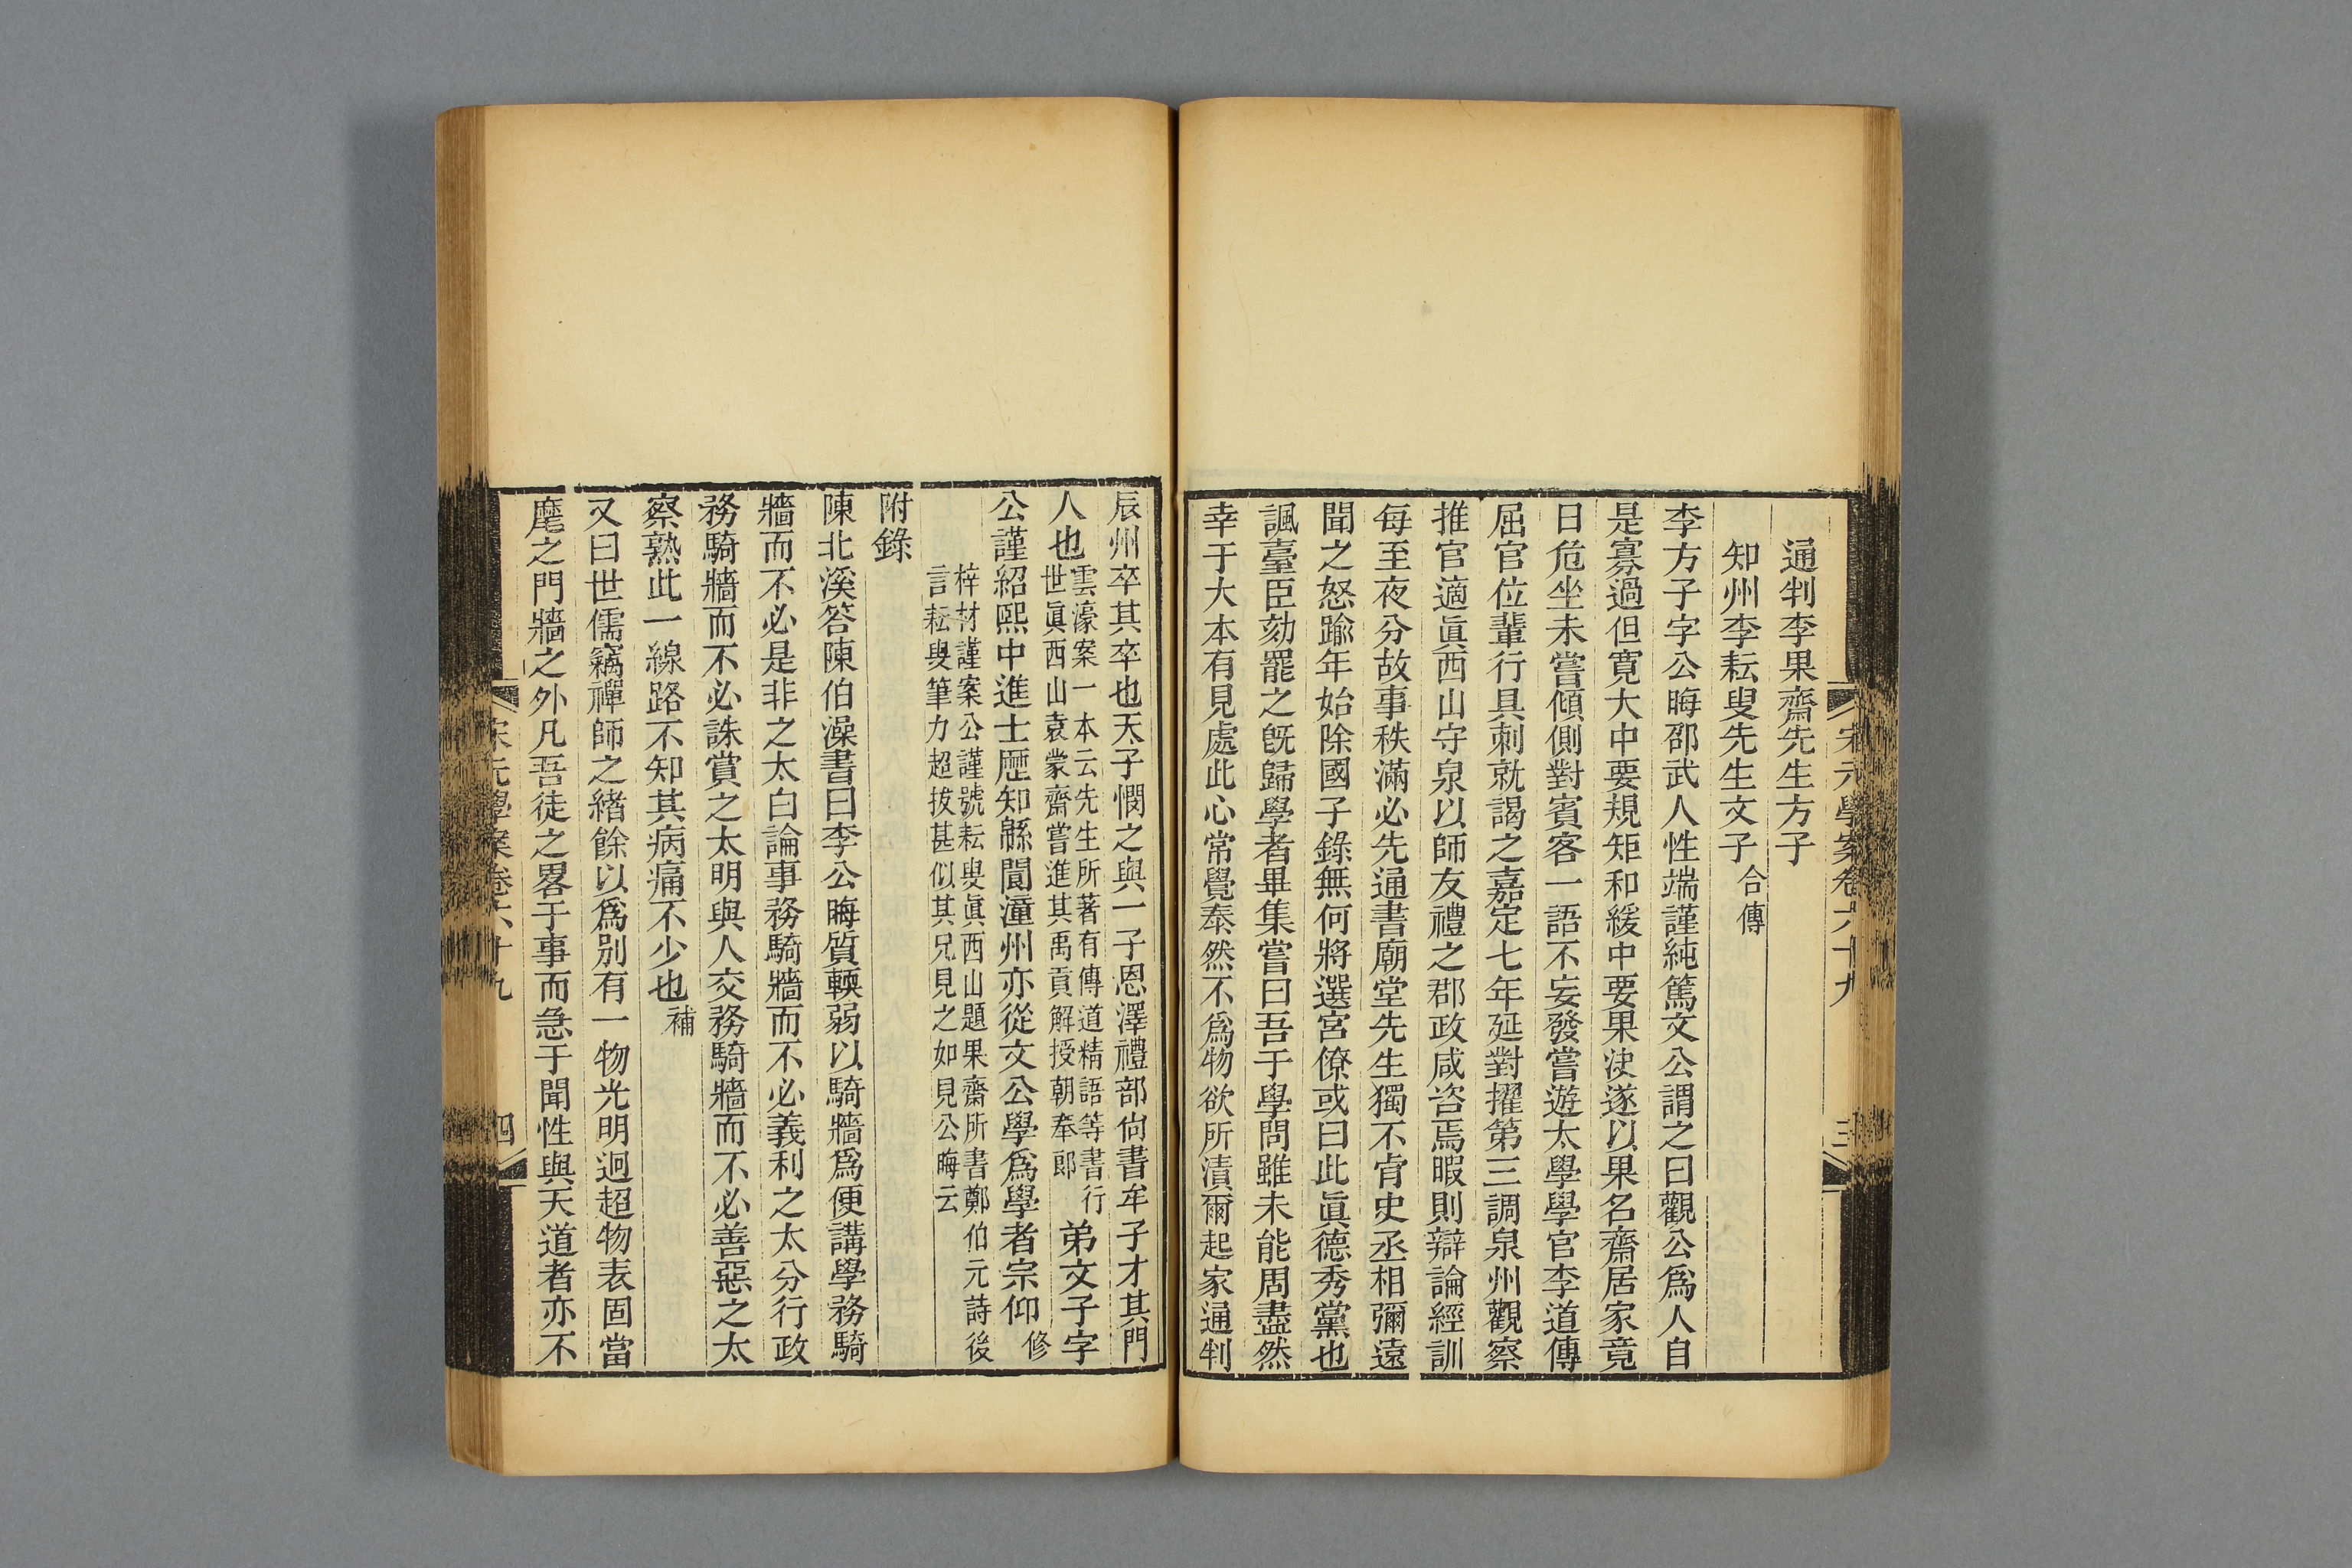 宋元學案卷六十九
三
通判李果齋先生方子
知州李耘叟先生文子合傳
李方子字公晦邵武人性端謹純篤文公謂之曰觀公爲人自
是寡過但寬大中要規矩和緩中要果決遂以果名齋居家竟
日危坐未嘗傾側對賓客一語不妄發嘗遊太學學官李道傳
屈官位輩行具刺就謁之嘉定七年延對擢第三調泉州觀察
推官適眞西山守泉以師友禮之郡政咸咨焉暇則辯論經訓
每至夜分故事秩滿必先通書廟堂先生獨不肯史丞相彌遠
聞之怒踰年始除國子錄無何將選宮僚或曰此眞德秀黨也
諷臺臣劾罷之旣歸學者畢集嘗曰吾于學問雖未能周盡然
幸于大本有見處此心常覺泰然不爲物欲所漬爾起家通判
辰州卒其卒也天子憫之與一子恩澤禮部尙書牟子才其門
人也雲濠案一本云先生所著有傳道精語等書行世眞西山袁蒙齋嘗進其禹貢解授朝奉郎弟文子字
公謹紹熙中進士歷知緜閬潼州亦從文公學爲學者宗仰修
梓材謹案公謹號耘叟眞西山題果齋所書鄭伯元詩後
言耘叟筆力超拔甚似其兄見之如見公晦云
附錄
陳北溪答陳伯澡書曰李公晦質輭弱以騎牆爲便講學務騎
牆而不必是非之太白論事務騎牆而不必義利之太分行政
務騎牆而不必誅賞之太明與人交務騎牆而不必善惡之太
察熟此一線路不知其病痛不少也補
又曰世儒竊禪師之緒餘以爲别有一物光明迥超物表固當
麾之門牆之外凡吾徒之畧于事而急于聞性與天道者亦不
宋元學案卷六十九
四